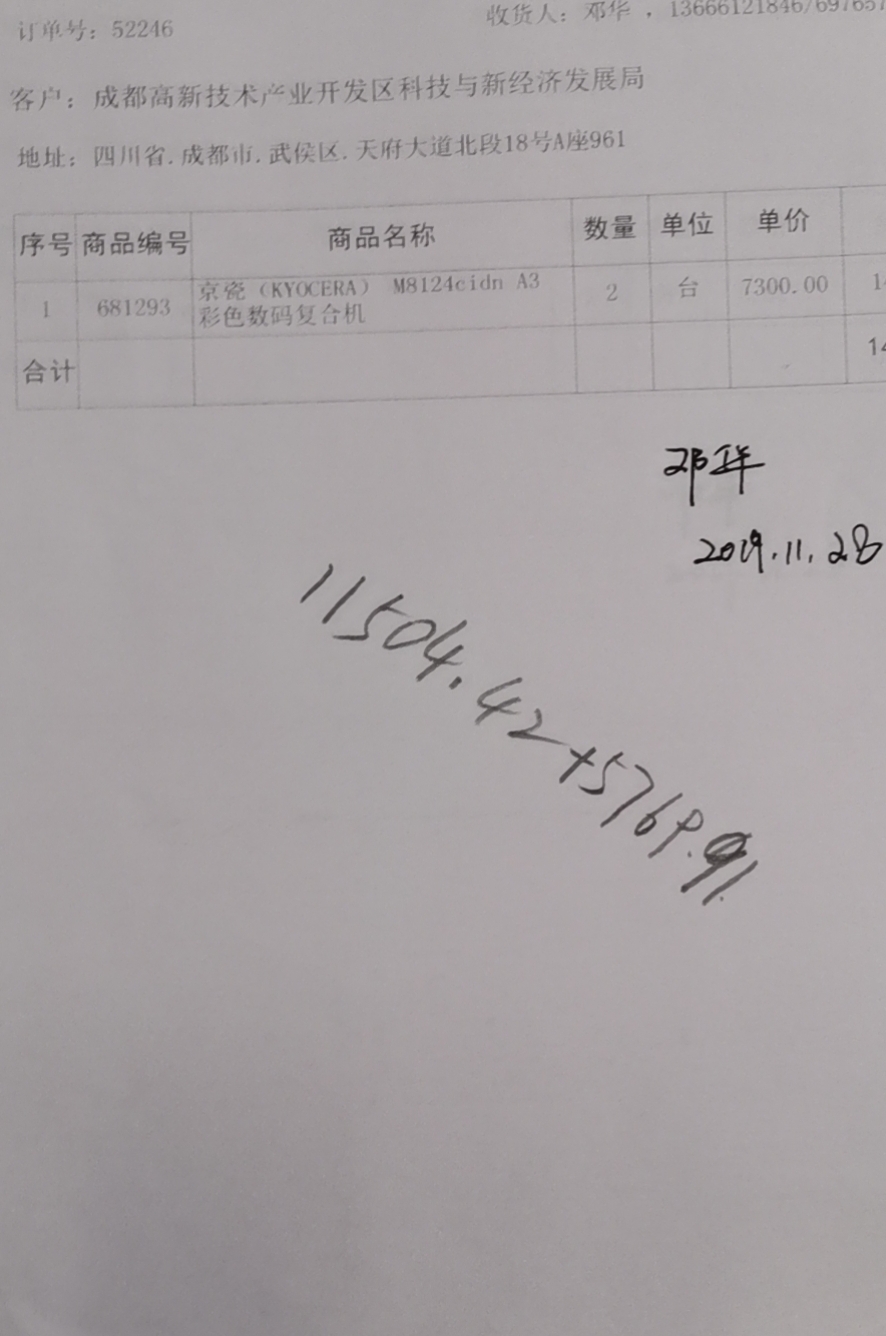 订单号：52246
收货人：邓华 ，13666121846/697657
客户：成都高新技术产业开发区科技与新经济发展局
地址：四川省.成都市.武侯区.天府大道北段18号A座961
序号 商品编号 商品名称 数量 单位 单价
1 681293 京瓷（KYOCERA） M8124cidn A3 2 台 7300.00 14
彩色数码复合机
合计 14
邓华
2019.11.28
11504.42+5769.91